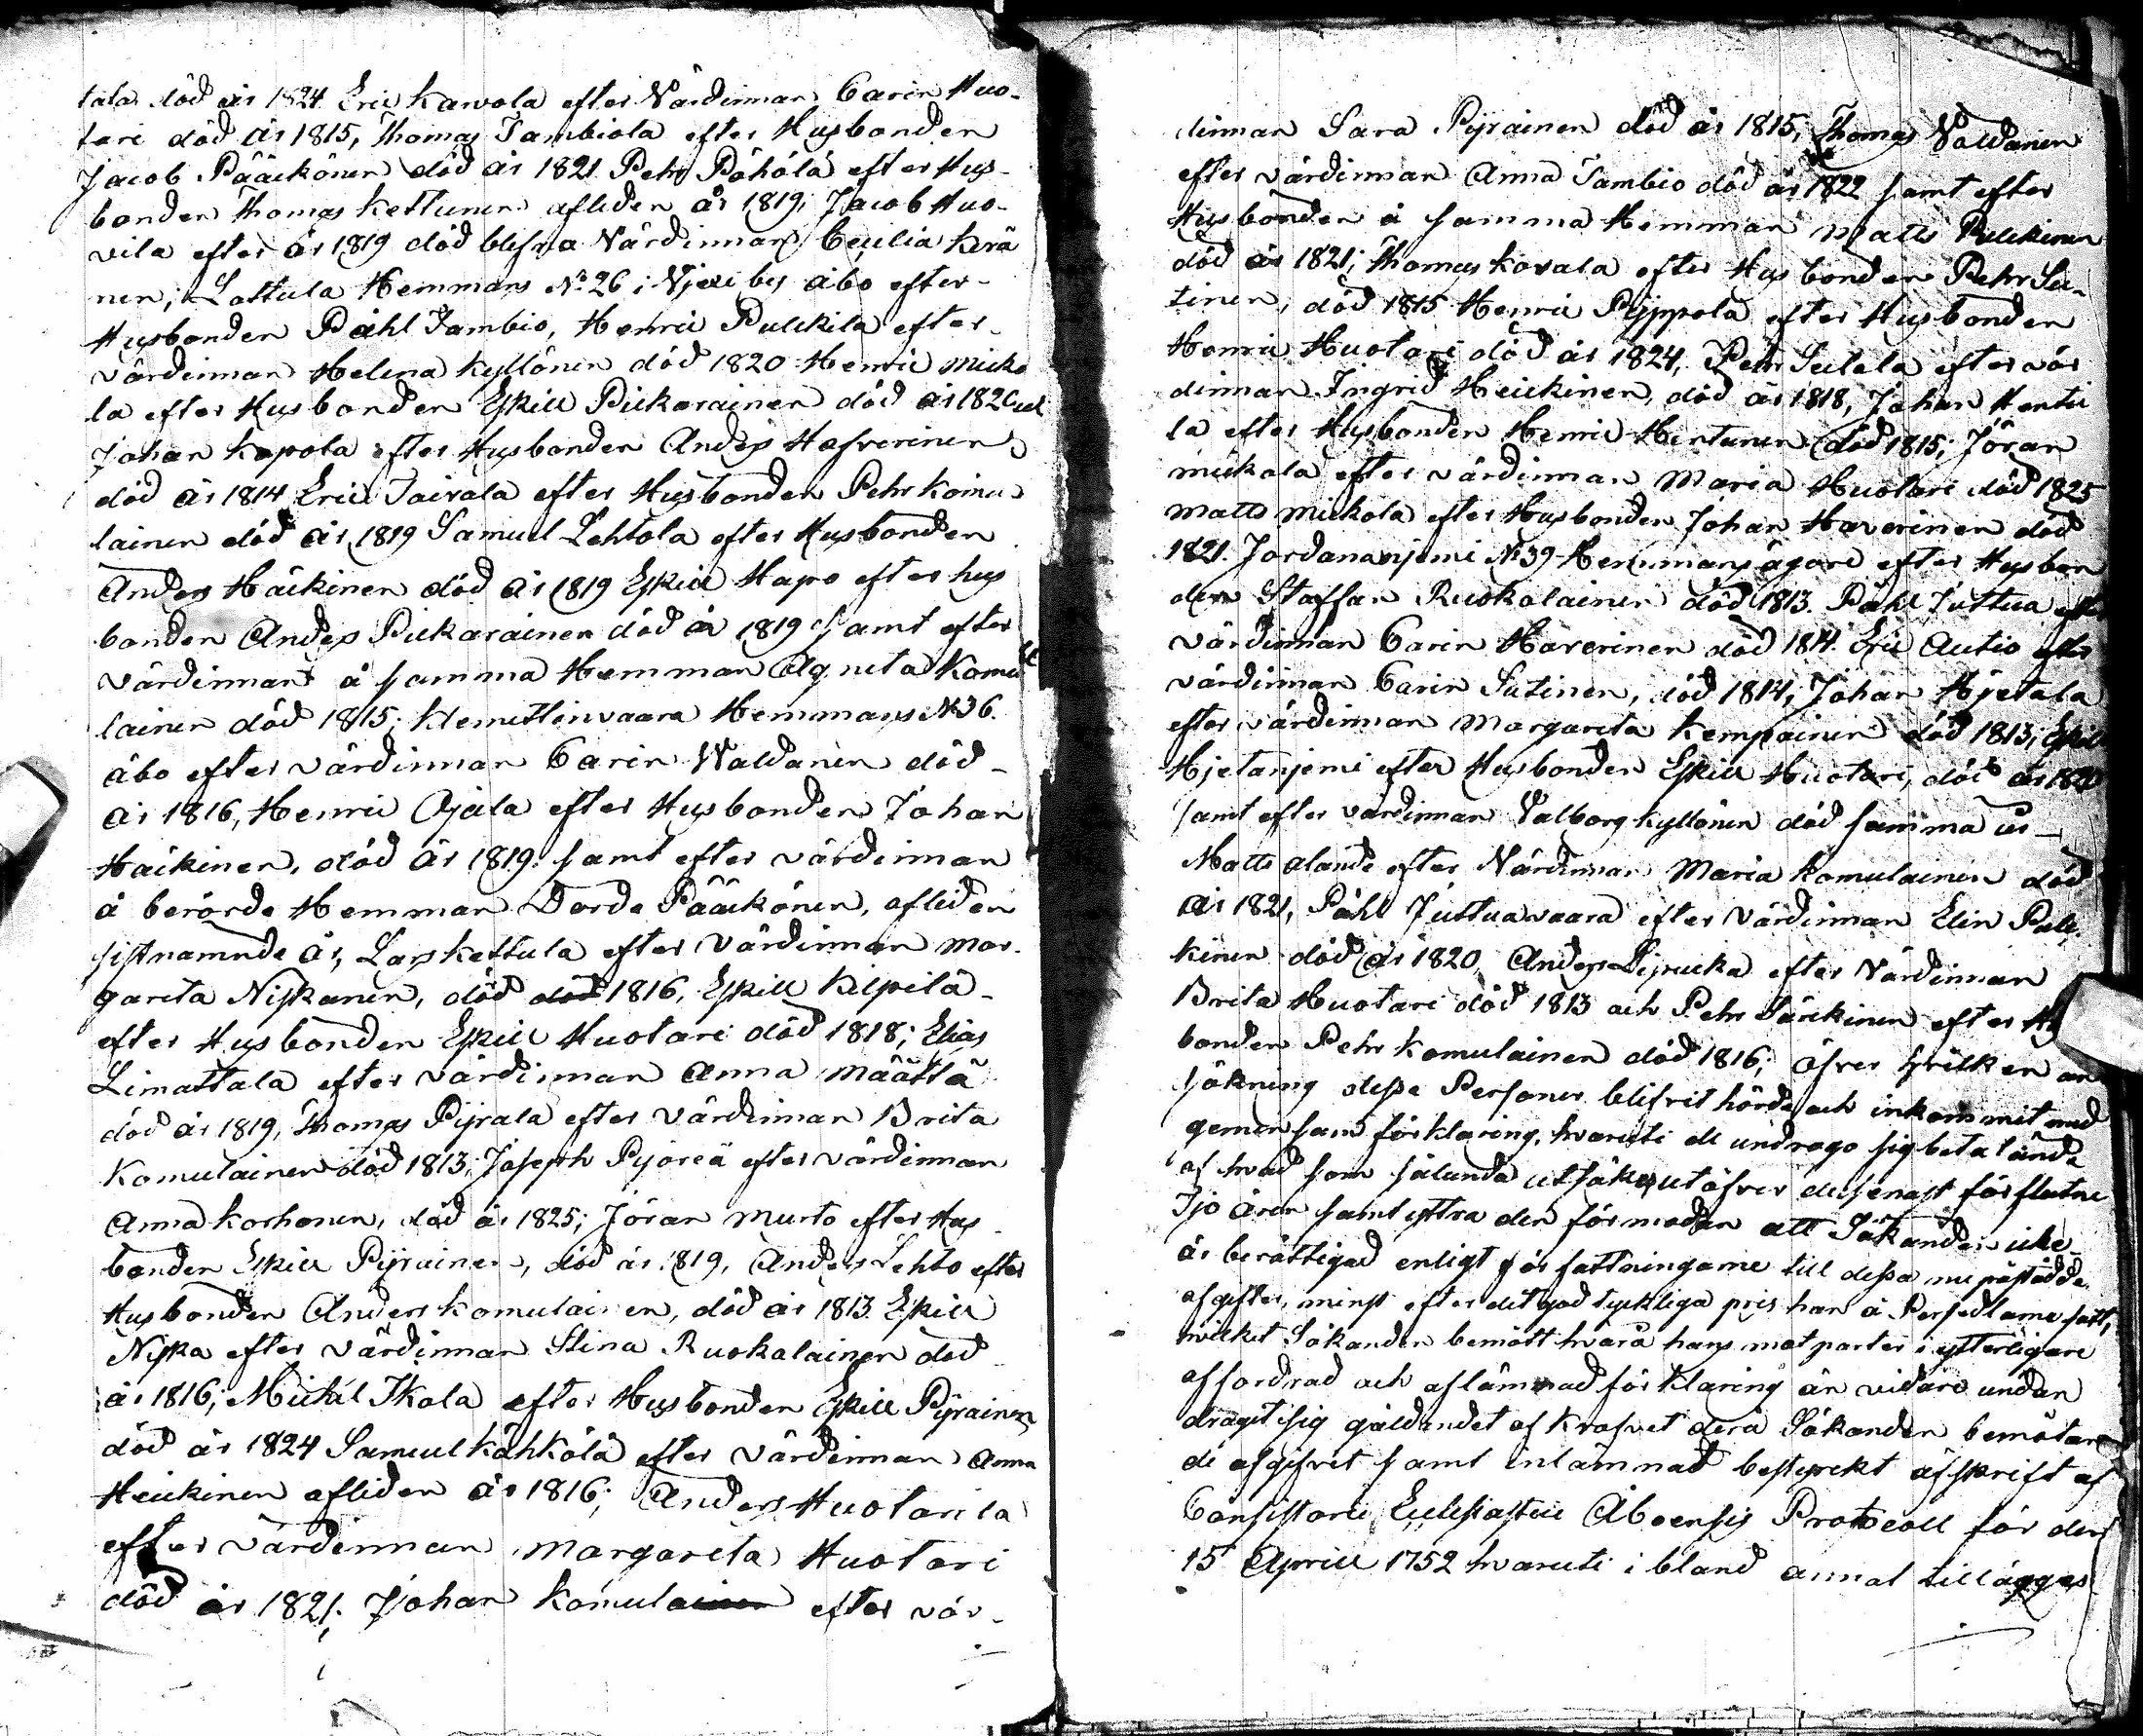 tala död år 1824. Eric Karvola efter Värdinnan Carin Huo-
tari död År 1815, Thomas Tambiola efter Husbonden
Jacob Pääckönen död år 1821. Pehr Pöhölä efter Hus-
bonden Thomas Kettunen afliden år 1819; Jacob Huo-
vila efter år 1819 död blefna Värdinnan Cecilia Kerä
nen; Lattula Hemmans No 26 i by åbo efter
Husbonden Påhl Tambio, Henric Pulckila efter
värdinnan Helena Kyllönen död 1820 Henric Micko
la efter Husbonden Eskill Pickarainen död år 1820 och
Johan Kapola efter Husbonden Anders Hafverinen
död år 1814 Eric Tairala efter Husbonden Pehr Komu
lainen död år 1819 Samuel Lehtola efter Husbonden
Anders Häikinen död år 1819 Eskill Hapo efter hus
bonden Anders Pickarainen död år 1819 samt efter
värdinnan å samma Hemman Agneta Komu
lainen död 1815; Klemettinvaara Hemmans No 36.
åbo efter värdinnan Carin Waldanen död
År 1816, Henric Ojala efter Husbonden Johan
Häikinen, död År 1819. samt efter värdinnan
å berörde Hemman Dorde Pääckönen, afliden
sistnämnde År, Lars Kettula efter Värdinnan Mar-
gareta Niskanen, död död 1816, Eskill Kilpilä
efter Husbonden Eskill Huotari död 1818; Elias
Limattala efter värdinnan Anna Määttä
död år 1819, Thomas Pijrala efter värdinnan Brita
Komulainen död 1813; Joseph Pyöreä efter värdinnan
Anna Korhonen, död år 1825; Jöran Murto efter Hus
bonden Eskill Pijrainen, död år 1819, Anders Lehto efter
Husbonden Anders Komulainen, död år 1813. Eskill
Niska efter värdinnan Stina Ruokalainen död
år 1816; Michel Ikola efter Husbonden Eskill Pijrainen
död år 1824 Samuel Kähkölä efter värdinnan Anna
Heickinen afliden år 1816; Anders Huotarila
efter värdinnan Margareta Huotari
död år 1821; Johan Komulainen efter vär-
dinnan Sara Pijrainen död år 1815; Thomas Valdanen
efter värdinnan Anna Tambio död år 1822 samt efter
Husbonden å samma Hemman Matts Pulckinen
död år 1821; Thomas Kovala efter Husbonden Pehr Su-
tinen, död 1815 Henric Pijppola efter Husbonden
Henric Huotari död år 1824, Pehr Seilola efter vär
dinnan Ingrid Heickinen, död år 1818, Johan Hentu
la efter Husbonden Henric Hentunen död 1815; Jöran
Mickala efter värdinnan Maria Huotari död 1825
Matts Mickola efter Husbonden Johan Haverinen död
1821. Jordananjemi No 39 Hemmansägare efter Husbon
den Staffan Ruokolainen död 1813. Påhl Juttua efter
värdinnan Carin Haverinen död 1814. Eric Autio efter
värdinnan Carin Sutinen, död 1814, Johan Hjetala
efter värdinnan Margareta Kempainen död 1813; Eskill
Hjetanjemi efter Husbonden Eskill Huotari, död år
samt efter värdinnan Valborg Kyllönen död samma år
Matts Alande efter Värdinnan Maria Komulainen död
År 1821, Påhl Juttuavaara efter värdinnan Elin Pulc
kinen död år 1820, Anders efter Värdinnan
Brita Huotari död 1813 och Pehr Särkinen efter Hus
bonden Pehr Komulainen död 1816; öfver hvilken an
sökning dessa Personer blifvit hörde och inkommit med
gemensam förklaring, hvaruti de undrago sig betalande
af hvad som sålunda utsökes utöfver de senast förflutne
Tjo åren samt yttra den förmodan att Sökanden icke
är berättigad enligt författningarne till dessa nu påstådde
afgifter, minst efter det godtyckliga pris han å Persedlarne satt,
hvilket Sökanden bemött hvarå hans motparter i ytterligare
affordrad och aflämnad förklaring än vidare undan
dragit sig gäldandet af krafvet derå Sökanden bemötan
de afgifvit samt inlämnad bestyrckt afskrift af
Consistorii Ecclesiastici Aboensis Protocoll för den
15 Aprill 1752 hvaruti i bland annat tillägges